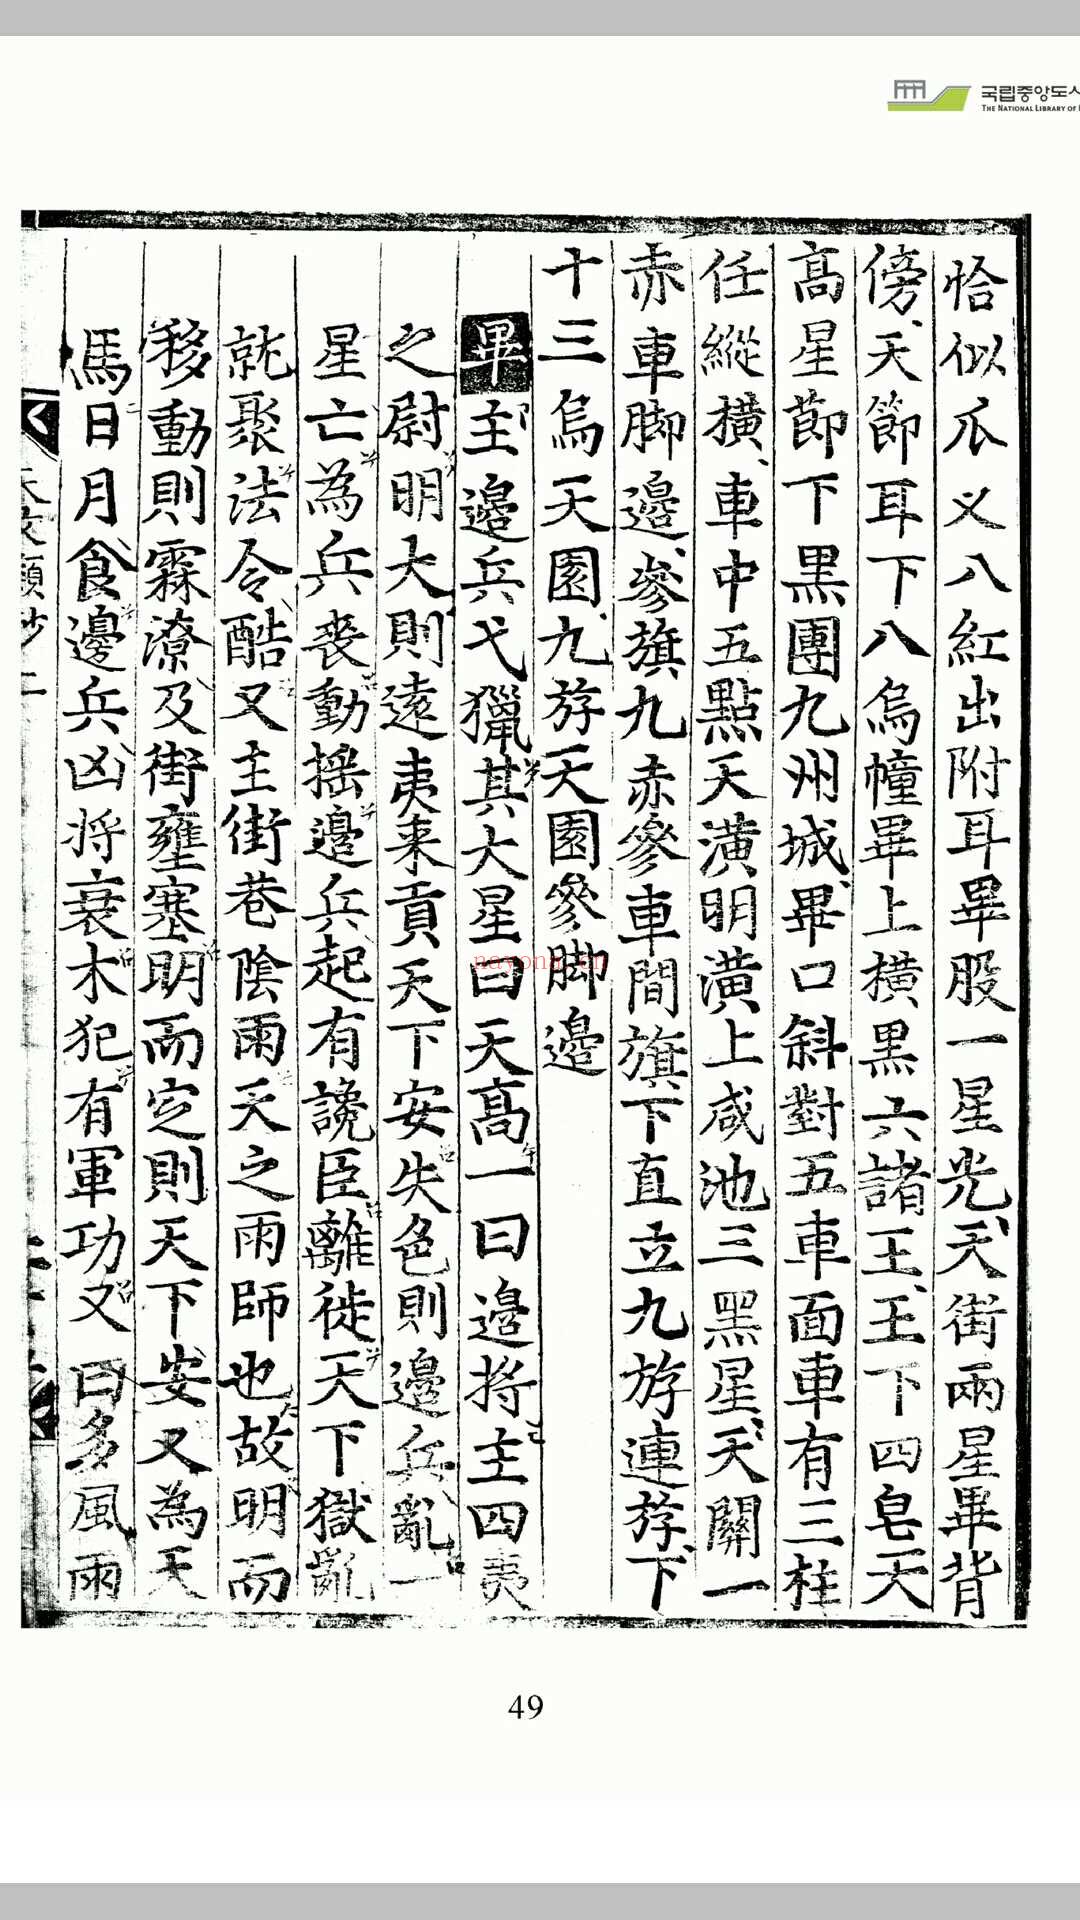 국립중앙도서
THE NATIONAL LIBRARY OF
恰似爪乂八紅出附耳畢股一星光天街兩星畢背
傍天節耳下八烏幢畢上橫黒六諸王王下四皂天
髙星節下黒團九州城畢口斜對五車面車有三柱
任縱橫車中五點天潢明潢上咸池三黑星天關一
赤車脚邉參旗九赤參車間旗下直立九斿連斿下
十三烏天園九斿天園參脚邉
畢主邉兵弋獵其大星曰天髙一曰邉將主四夷
之尉明大則遠夷来貢天下安失色則邉兵亂一
星亡為兵喪動揺邉兵起有讒臣離徙天下獄亂
就聚法令酷又主街巷陰雨天之雨師也故明而
移動則霖潦及街壅塞明而定則天下安又為天
馬日月食邊兵凶将衰木犯有軍功又曰多風雨
nayona.cn
49